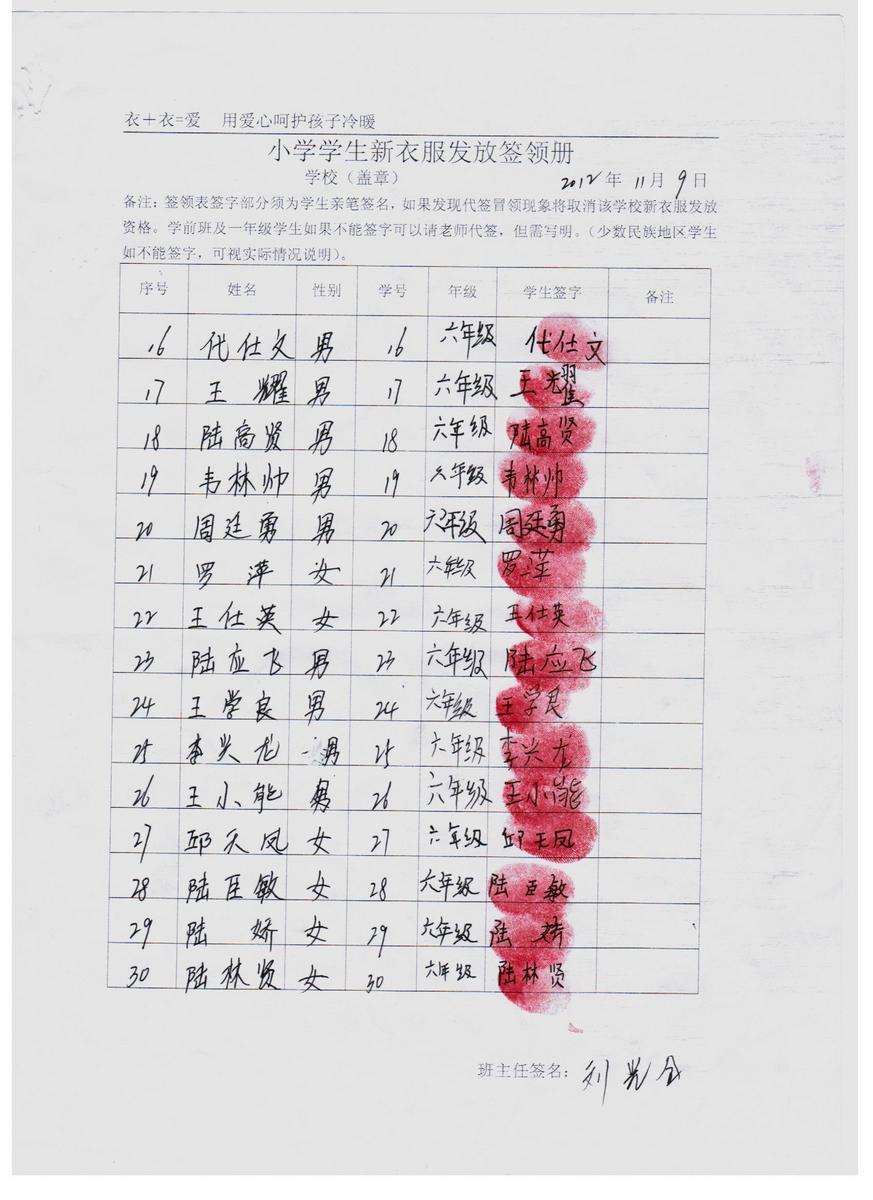 衣+衣=爱 用爱心呵护孩子冷暖
小学学生新衣服发放签领册
学校（盖章） 2012年11月9日
备注：签领表签字部分须为学生亲笔签名，如果发现代签冒领现象将取消该学校新衣服发放
资格。学前班及一年级学生如果不能签字可以请老师代签，但需写明。（少数民族地区学生
如不能签字，可视实际情况说明）。
序号 姓名 性别 学号 年级 学生签字 备注
16 代仕文 男 16 六年级 代仕文
17 王耀 男 17 六年级 王耀
18 陆高贤 男 18 六年级 陆高贤
19 韦林帅 男 19 六年级 韦林帅
20 周廷勇 男 20 六年级 周廷勇
21 罗萍 女 21 六年级 罗萍
22 王仕英 女 22 六年级 王仕英
23 陆应飞 男 23 六年级 陆应飞
24 王学良 男 24 六年级 王学良
25 李兴龙 男 25 六年级 李兴龙
26 王小能 男 26 六年级 王小能
27 邱天凤 女 27 六年级 邱王凤
28 陆臣敏 女 28 六年级 陆臣敏
29 陆娇 女 29 六年级 陆娇
30 陆林贤 女 30 六年级 陆林贤
班主任签名：刘光全